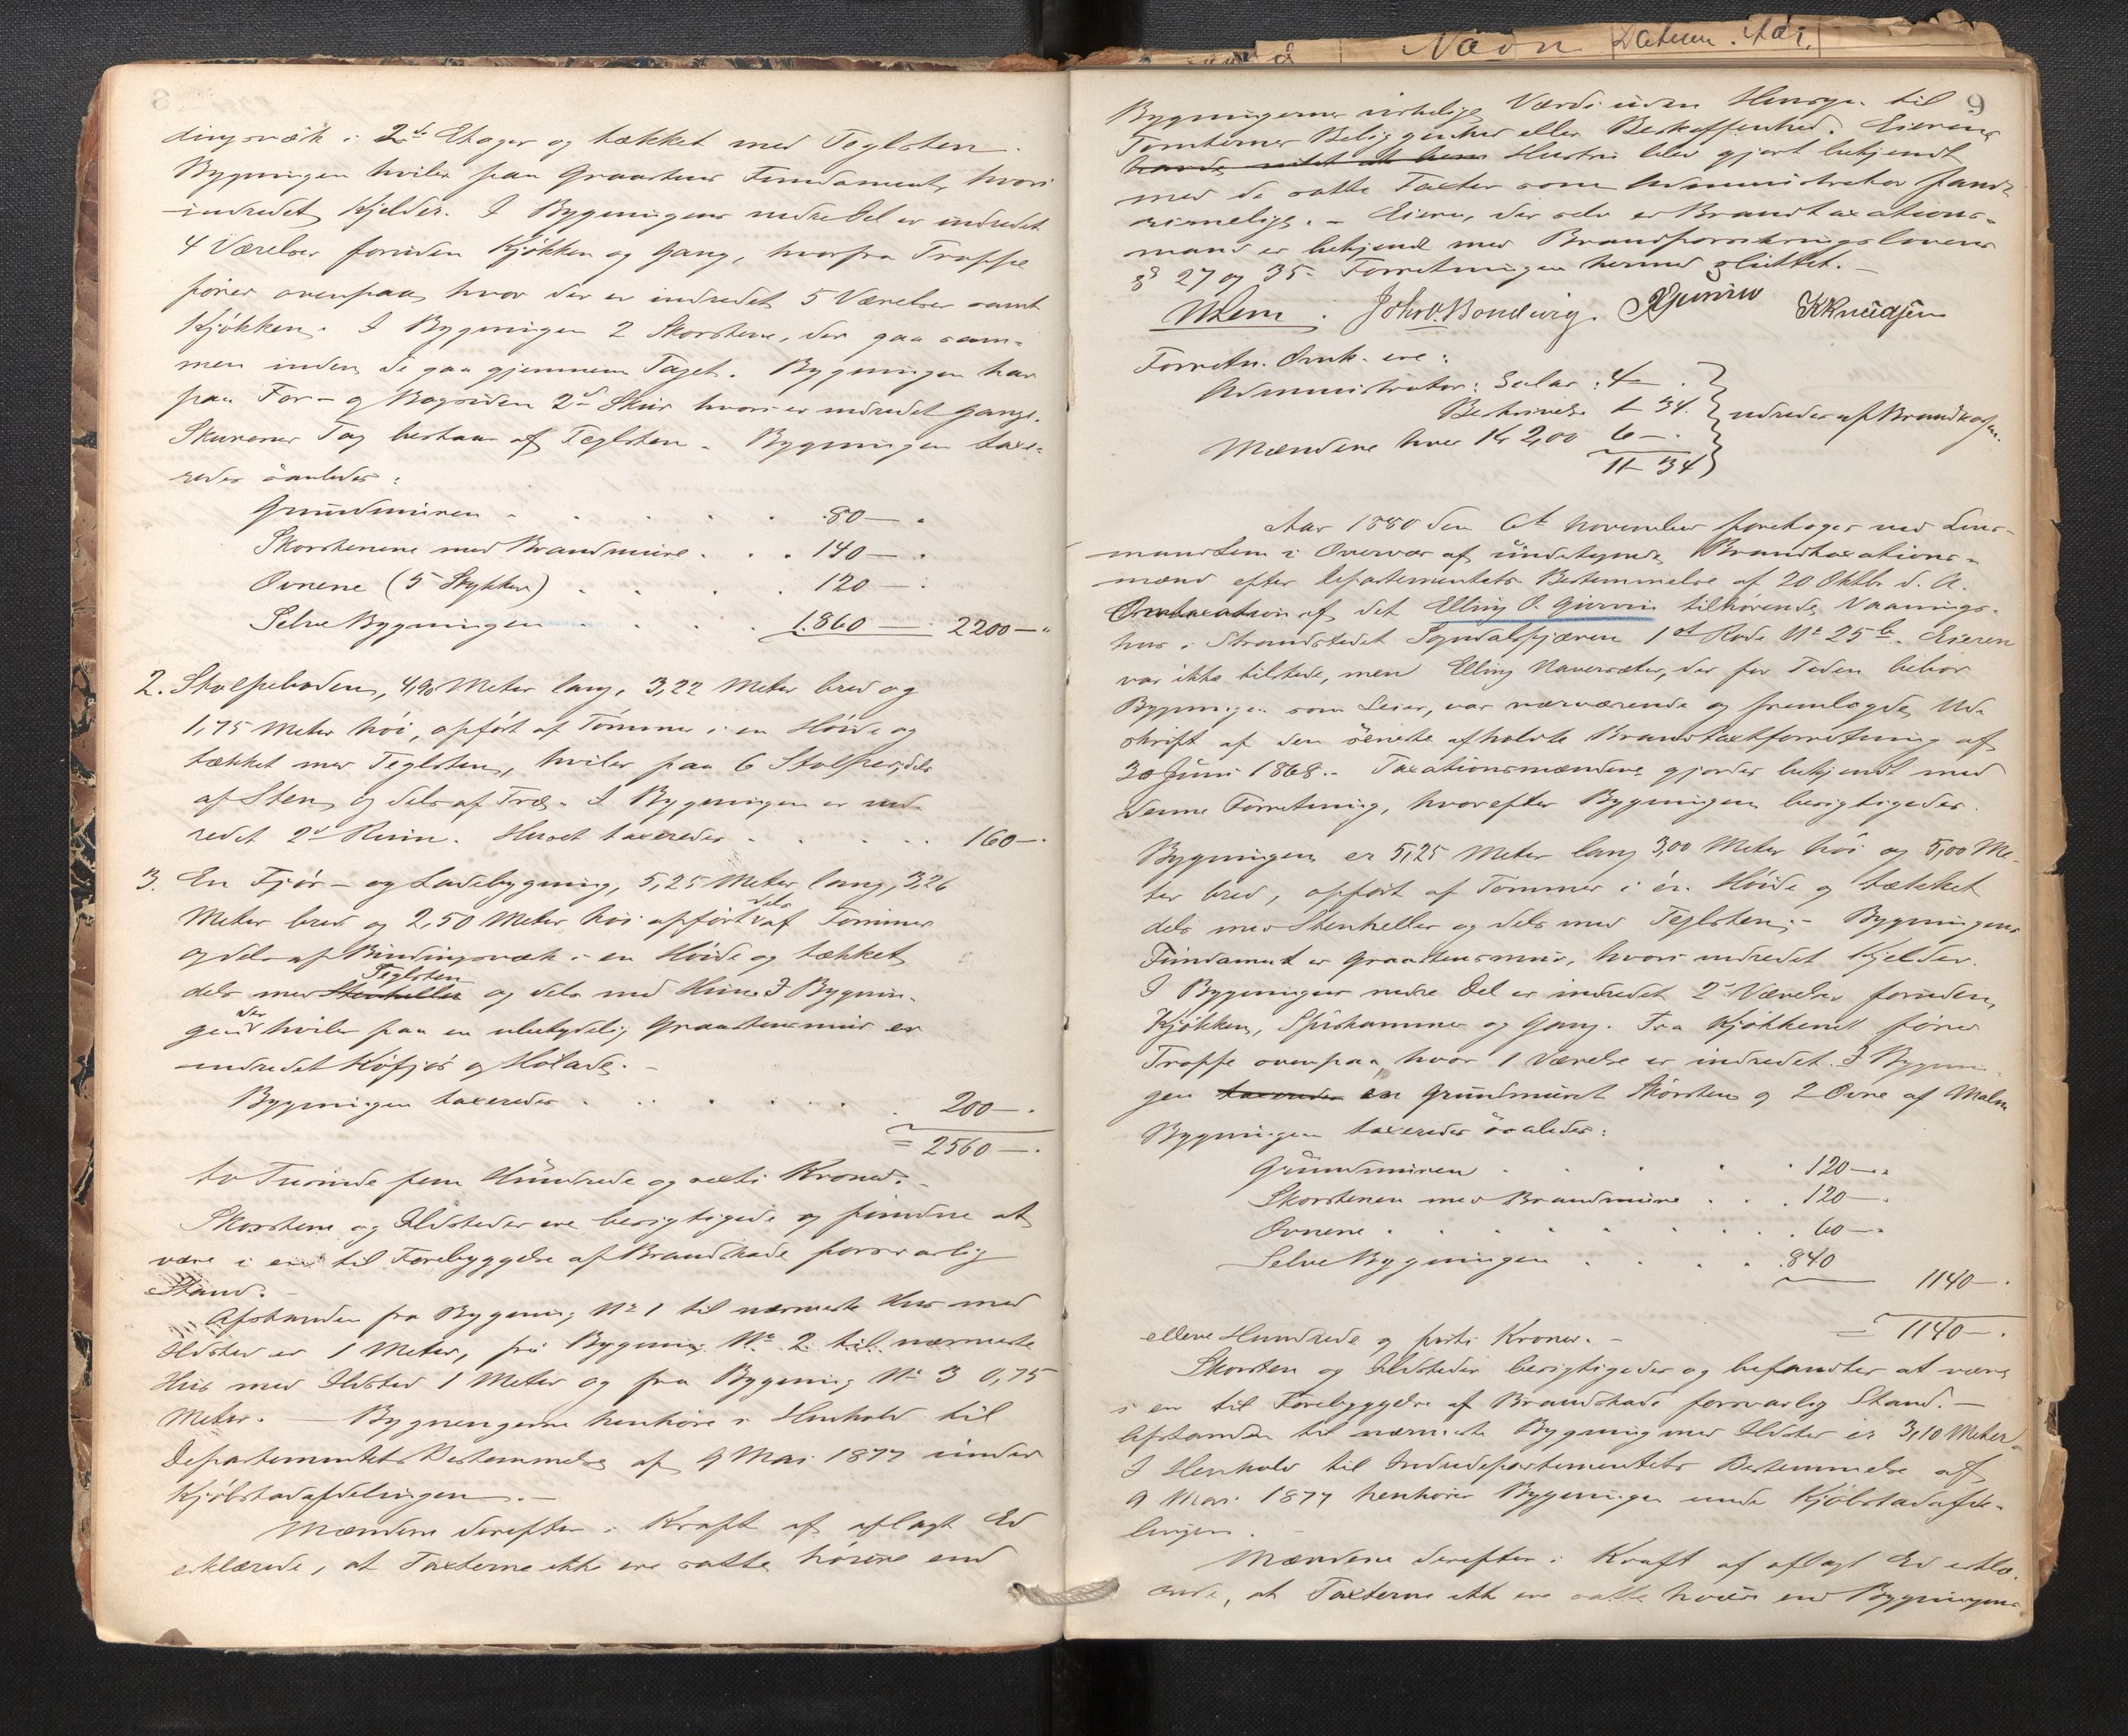 dingsværk i 2de Etager og tækket med Teglsten.
Bygningen hviler paa Graastens Fundament, hvori
indredet Kjelder. I Bygningens nedre Del er indredet
4 Værelser foruden Kjøkken og Gang, hvorfra Trappe
fører ovenpaa, hvor der er indredet 5 Værelser samt
Kjøkken. I Bygningen 2 Skorstene, der gaa sam-
men inden de gaa gjennem Taget. Bygningen har
paa For- og Bagsiden 2de Skur hvori er indredet Gange.
Skurenes Tag bestaar af Teglsten. Bygningen taxe-
redes saaledes:
Grundmuren . . . . 80 —
Skorstenene med Brandmure . . . 140 —
Ovnene (5 Stykker) . . . . 120 —
Selve Bygningen . . . . 1.860 — 2200 —
2. Stolpeboden, 4,90 Meter lang, 3,22 Meter bred og
1,75 Meter høi, opført af Tømmer i en Høide og
tækket med Teglsten, hviler paa 6 Stolper, dels
af Sten og dels af Træ. I Bygningen er ind-
redet 2de Rum. Huset taxeredes . . . . . 160 —
3. En Fjøs- og Ladebygning, 5,25 Meter lang, 3,26
Meter bred og 2,50 Meter høi opført dels af Tømmer
og dels af Bindingsværk i en Høide og tækket
dels med Stenheller Teglsten og dels med Hun. I Bygnin-
gen der hviler paa en ubetydelig Graastensmur er
indredet Kofjøs og Hølade. —
Bygningen taxeredes . . . . . . 200 —
= 2560 —
to Tusinde fem Hundrede og sexti Kroner. —
Skorstene og Ildsteder ere besigtigede og fundne at
være i en til Forebyggelse af Brandskade forsvarlig
Stand. —
Afstanden fra Bygning No 1 til nærmeste Hus med
Ildsted er 1 Meter, fra Bygning No 2 til nærmeste
Hus med Ildsted 1 Meter og fra Bygning No 3 0,75
Meter. — Bygningerne henhøre i Henhold til
Departementets Bestemmelse af 9 Mai 1877 under
Kjøbstadafdelingen. —
Mændene derefter i Kraft af aflagt Ed
erklærede, at Taxterne ikke ere satte høiere end
Navn Datum. Aar.
9
Bygningernes virkelige Værdi uden Hensyn til
Tomternes Beliggenhed eller Beskaffenhed. Eierens
Hustru blev gjort bekjendt
med de satte Taxter som Administrator fandt
rimelige. — Eieren, der selv er Brandtaxations-
mand er bekjendt med Brandforsikringslovens
§§ 27 og 35. Forretningen hermed sluttet. —
MLem. Joh. O. Bondevig. KKnudsen
Forretn. Omk. ere:
Administrator: Salær: 4 —
Beskrivelse 1 34.
Mændene hver Kr 2,00 6 —
11 34
udredes af Brandkassen.
Aar 1880 den 6te November foretoges ved Lens-
mand Lem i Overvær af undertegnede Brandtaxations-
mænd efter Departementets Bestemmelse af 20 Oktbr d. A.
Omtaxation af det Elling O. Gjurvin tilhørende Vaanings-
hus i Strandstedet Sogndalsfjæren 1ste Rode No 25 b. Eieren
var ikke tilstede, men Elling Navarsæter, der for Tiden bebor
Bygningen som Leier, var nærværende og fremlagde Ud-
skrift af den seneste afholdte Brandtaxtforretning af
30 Juni 1868. — Taxationsmændene gjordes bekjendt med
denne Forretning, hvorefter Bygningen besigtigedes.
Bygningen er 5,25 Meter lang 3,00 Meter høi og 5,00 Me-
ter bred, opført af Tømmer i én Høide og tækket
dels med Stenheller og dels med Teglsten. — Bygningens
Fundament er Graastensmur, hvori indredet Kjelder.
I Bygningens nedre Del er indredet 2de Værelser foruden
Kjøkken, Spiskammer og Gang. Fra Kjøkkenet fører
Trappe ovenpaa, hvor 1 Værelse er indredet. I Bygnin-
gen taxeredes en grundmuret Skorsten og 2 Ovne af Malm
Bygningen taxeredes saaledes:
Grundmuren . . . . . 120 —
Skorstenen med Brandmure . . . 120 —
Ovnene . . . . . . . 60 —
Selve Bygningen . . . . 840
1140 —
elleve Hundrede og forti Kroner. — = 1140 —
Skorsten og Ildsteder besigtigedes og befandtes at være
i en til Forebyggelse af Brandskade forsvarlig Stand. —
Afstanden til nærmeste Bygning med Ildsted er 3,10 Meter.
I Henhold til Indredepartementets Bestemmelse af
9 Mai 1877 henhører Bygningen under Kjøbstadafde-
lingen. —
Mændene derefter i Kraft af aflagt Ed erklæ-
rede, at Taxterne ikke ere satte høiere end Bygningens